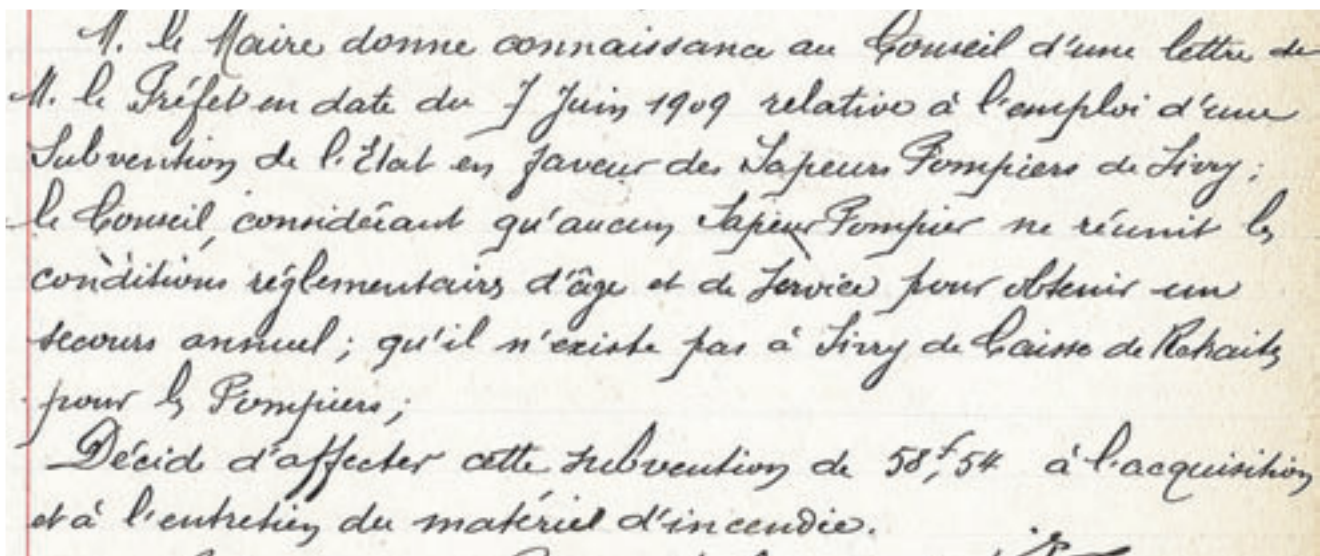 M. le Maire donne connaissance au Conseil d'une lettre de
M. le Préfet en date du 7 Juin 1909 relative à l'emploi d'une
Subvention de l'État en faveur des Sapeurs Pompiers de Livry ;
le Conseil, considérant qu'aucun Sapeur Pompier ne réunit les
conditions réglementaires d'âge et de Service pour obtenir un
secours annuel ; qu'il n'existe pas à Livry de Caisse de Retraites
pour les Pompiers ;
Décide d'affecter cette subvention de 58f,54 à l'acquisition
et à l'entretien du matériel d'incendie.